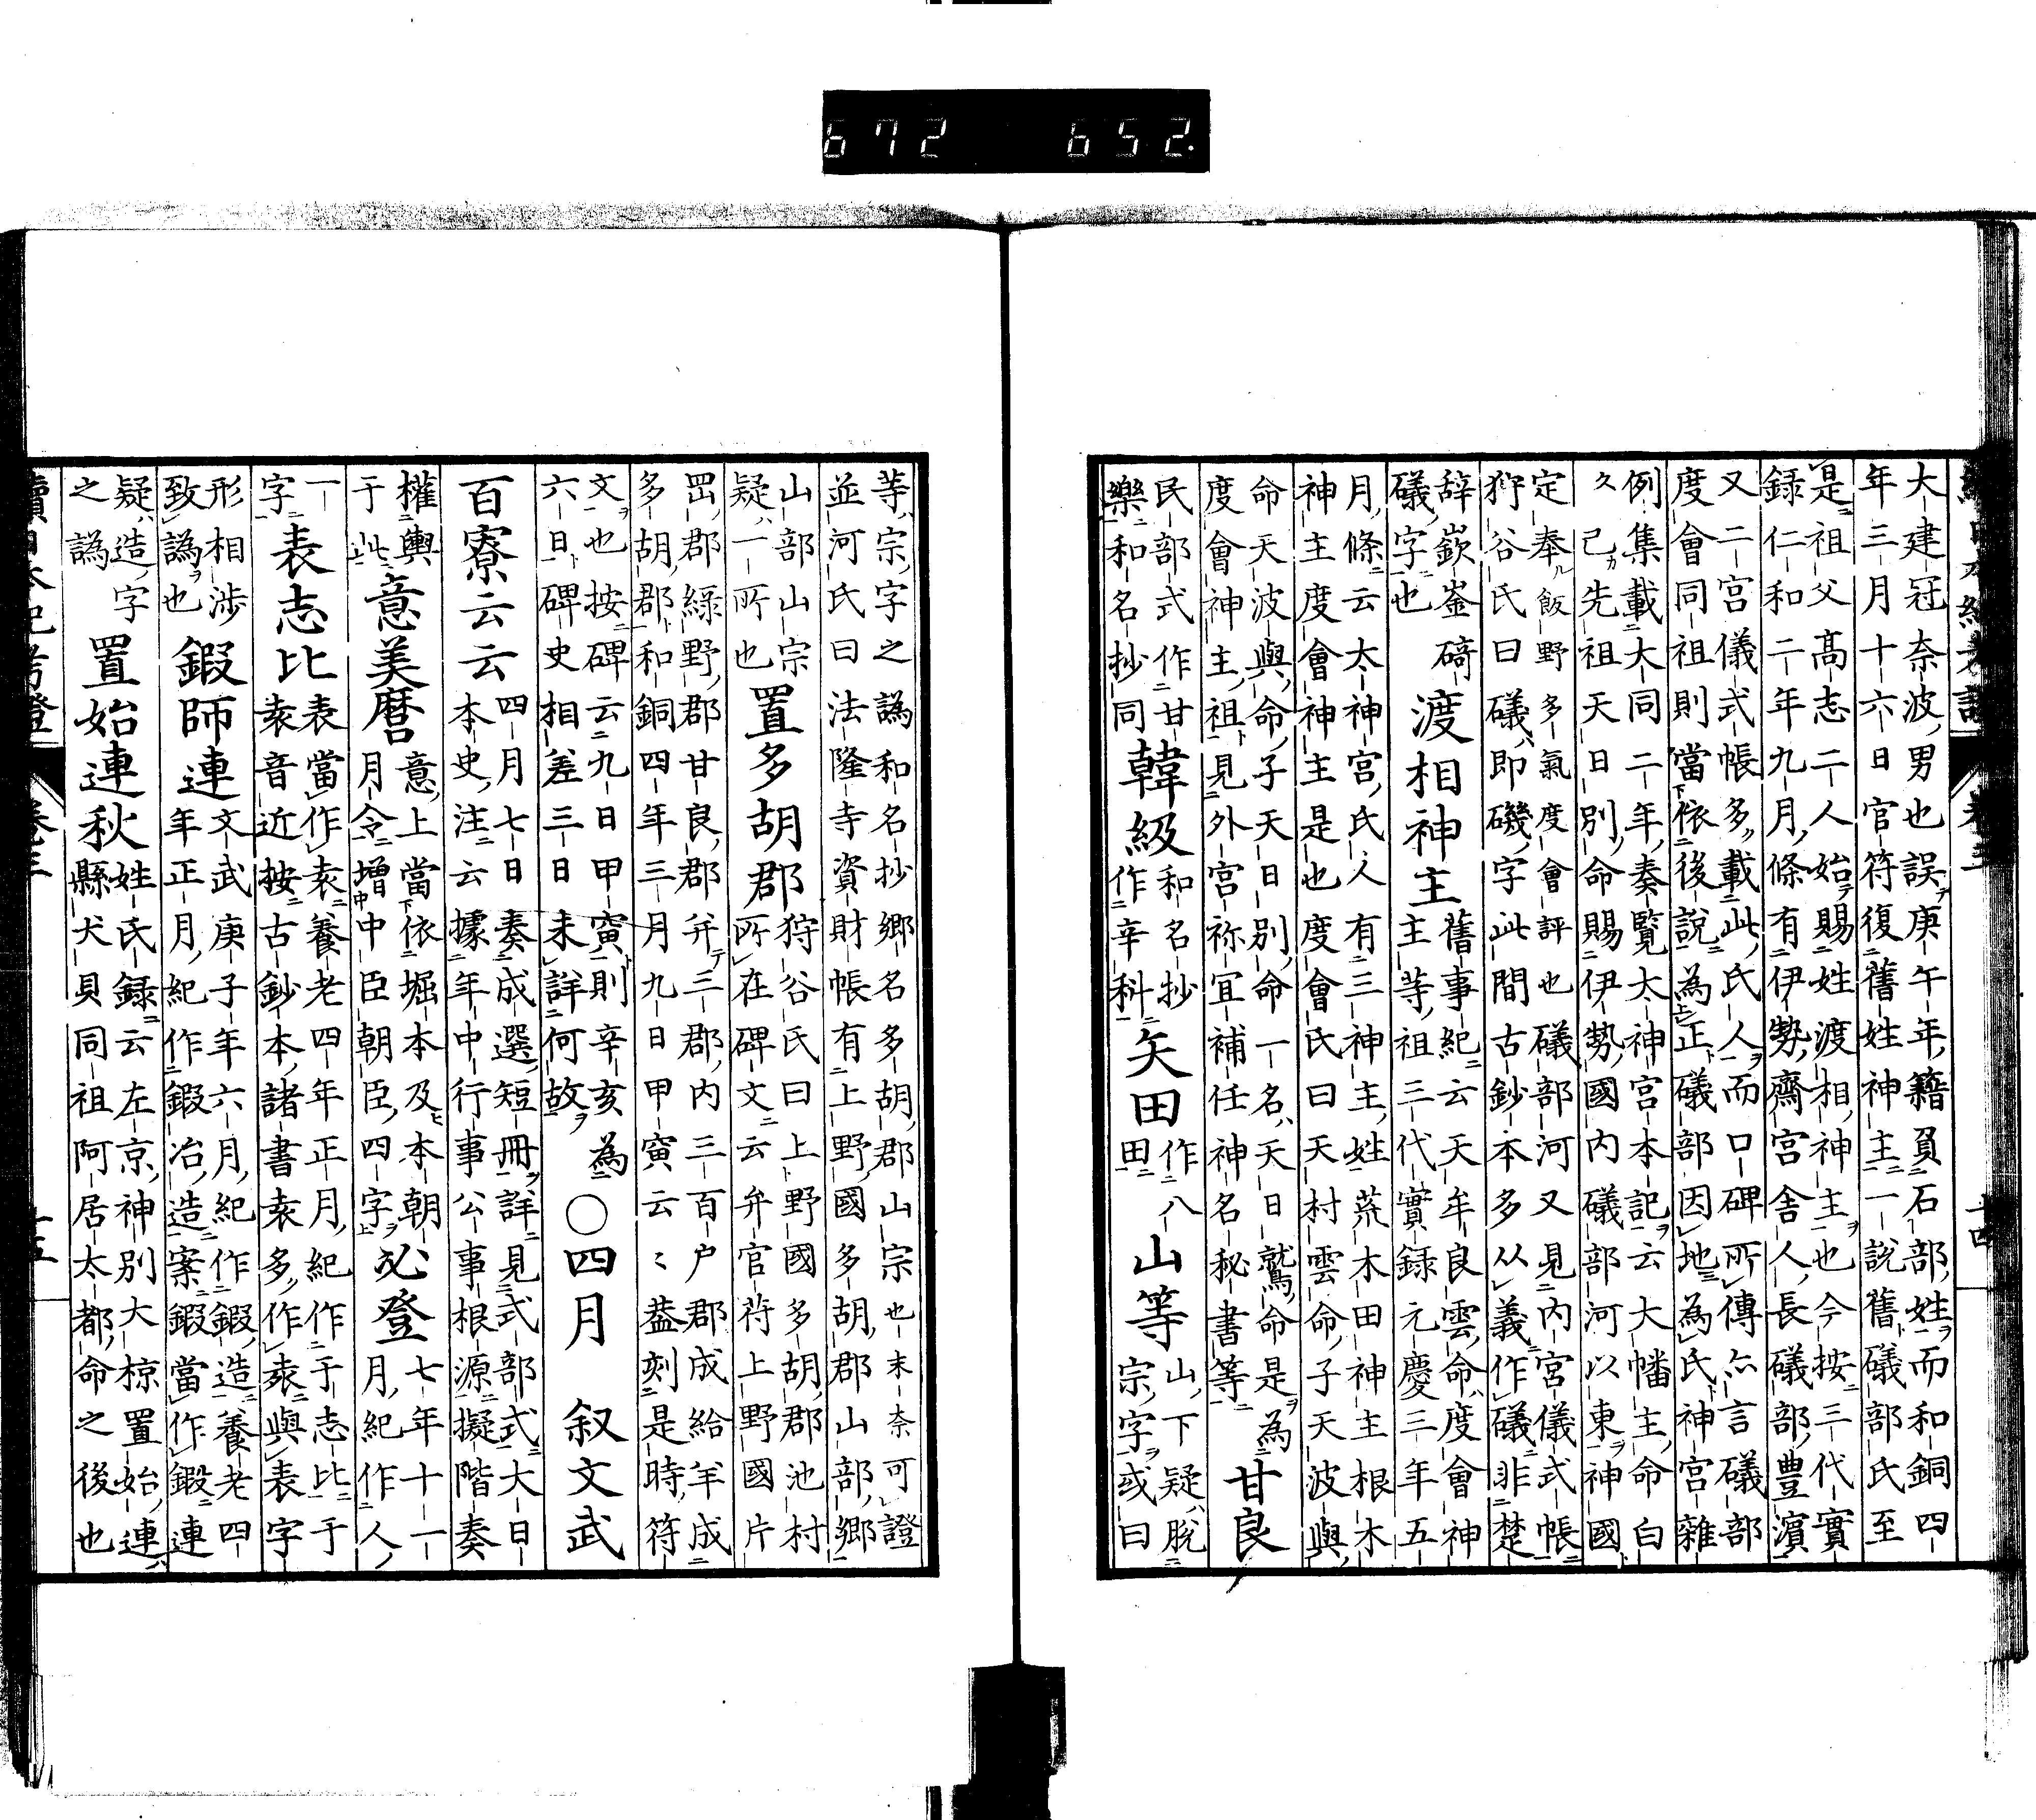 672 652.
大建冠奈波男也誤庚午年籍負石部姓而和銅四
年三月十六日官符復舊姓神主一說舊礒部氏至
是祖父高志二人始賜姓渡相神主也今按三代實
錄仁和二年九月條有伊勢齋宮舍人長礒部豊濱
又二宮儀式帳多載此氏人而口碑所傳亦言礒部
度會同祖則當依後說為正礒部因地為氏神宮雜
例集載大同二年奏覽太神宮本記云大幡主命白
久己先祖天日別命賜伊勢國內礒部河以東神國
定奉飯野多氣度會評也礒部河又見內宮儀式帳
狩谷氏曰礒即磯字此間古鈔本多从義作礒非楚
辭嶔崟碕
礒字也
渡相神主
舊事紀云天牟良雲命度會神
主等祖三代實錄元慶三年五
月條云太神宮氏人有三神主姓荒木田神主根木
神主度會神主是也度會氏曰天村雲命子天波與
命天波與命子天日別命一名天日鷲命是為
度會神主祖見外宮祢宜補任神名秘書等
甘良
民部式作甘
樂和名抄同
韓級
和名抄
作辛科
矢田
作八
田
山等
山下疑脫
宗字或曰
等宗字之譌和名抄鄉名多胡郡山宗也末奈可證
並河氏曰法隆寺資財帳有上野國多胡郡山部鄉
山部山宗
疑一所也
置多胡郡
狩谷氏曰上野國多胡郡池村
所在碑文云弁官符上野國片
罡郡綠野郡甘良郡并三郡內三百户郡成給羊成
多胡郡和銅四年三月九日甲寅云〻葢刻是時符
文也按碑云九日甲寅則辛亥為
六日碑史相差三日未詳何故
○四月
叙文武
百寮云云
四月七日奏成選短冊詳見式部式大日
本史注云據年中行事公事根源擬階奏
權輿
于此
意美麿
意上當依堀本及本朝
月令增中臣朝臣四字
必登
七年十一
月紀作人
一
字
表志比
表當作袁養老四年正月紀作于志比于
袁音近按古鈔本諸書袁多作袁與表字
形相涉
致譌也
鍜師連
文武庚子年六月紀作鍜造養老四
年正月紀作鍜冶造案鍜當作鍛連
疑造字
之譌
置始連秋
姓氏錄云左京神別大椋置始連
縣犬貝同祖阿居太都命之後也